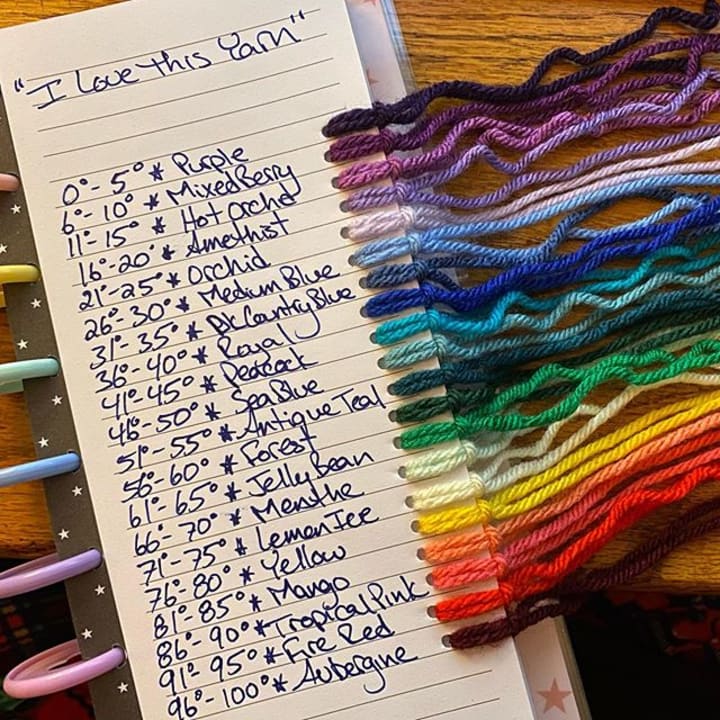 "I Love this Yarn"
0°-5° * Purple
6°-10° * Mixed Berry
11°-15° * Hot Orchid
16°-20° * Amethist
21°-25° * Orchid
26°-30° * Medium Blue
31°-35° * DK Country Blue
36°-40° * Royal
41°-45° * Peacock
46°-50° * Sea Blue
51°-55° * Antique Teal
56°-60° * Forest
61°-65° * Jelly Bean
66°-70° * Menthe
71°-75° * Lemon Ice
76°-80° * Yellow
81°-85° * Mango
86°-90° * Tropical Pink
91°-95° * Fire Red
96°-100° * Aubergine